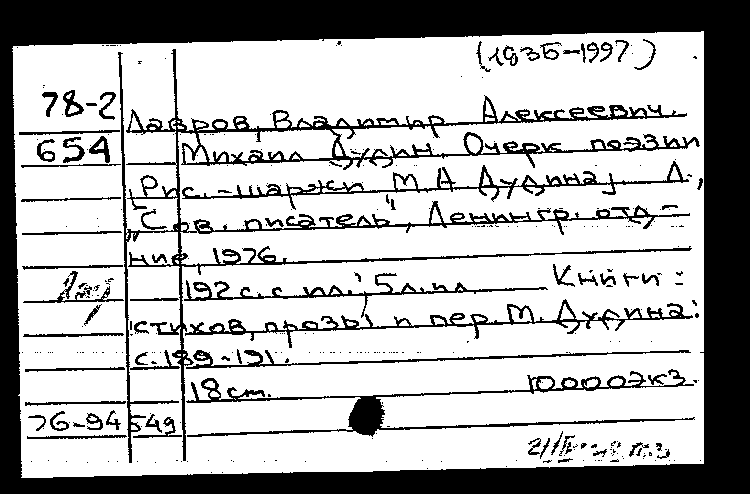 (1935-1997)
78-2
Лавров, Владимир Алексеевич.
654 Михаил Дудин. Очерк поэзии
[Рис.-шаржи М. А Дудина]. Л.,
"Сов. писатель", Ленингр. отд-
ние, 1976.
192 с. с ил.; 5 л. ил Книги
стихов, прозы и пер. М. Дудина:
с. 189-191.
18 см. 10000экз.
76-94 549